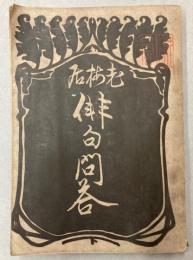 老梅居
俳句問答